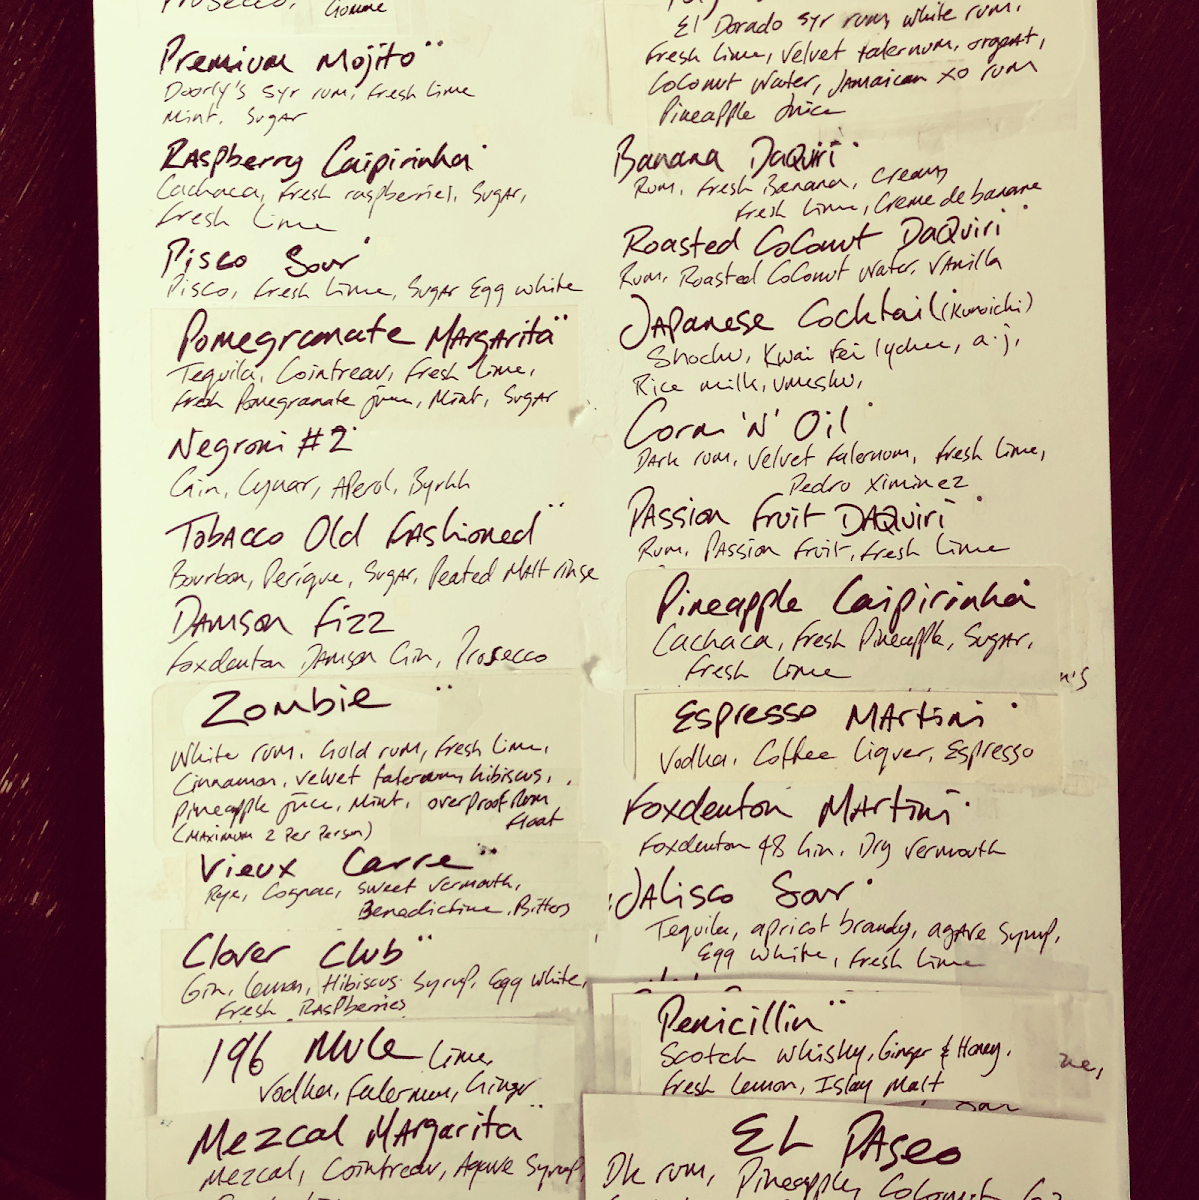 Prosecco, Gomme
Premium Mojito
Doorly's 5yr rum, fresh lime
Mint, Sugar
Raspberry Caipirinha
Cachaca, fresh raspberries, Sugar,
fresh lime
Pisco Sour
Pisco, fresh lime, Sugar Egg white
Pomegranate Margarita
Tequila, Cointreau, fresh lime,
fresh Pomegranate juice, Mint, Sugar
Negroni #2
Gin, Cynar, Aperol, Byrhh
Tobacco Old Fashioned
Bourbon, Perique, Sugar, Peated Malt rinse
Damson Fizz
Foxdenton Damson Gin, Prosecco
Zombie
White rum, Gold rum, fresh lime,
Cinnamon, velvet falernum, hibiscus,
pineapple juice, Mint, overproof Rum
float
(Maximum 2 Per Person)
Vieux Carre
Rye, Cognac, sweet vermouth,
Benedictine, Bitters
Clover Club
Gin, Lemon, Hibiscus Syrup, Egg white,
Fresh Raspberries
196 Mule Lime,
Vodka, Falernum, Ginger
Mezcal Margarita
Mezcal, Cointreau, Agave Syrup
El Dorado 5yr rum, white rum,
Fresh Lime, Velvet falernum, orgeat,
Coconut Water, Jamaican XO rum
Pineapple Juice
Banana Daquiri
Rum, Fresh Banana, cream,
Fresh Lime, Creme de banane
Roasted Coconut Daquiri
Rum, Roasted Coconut water, Vanilla
Japanese Cocktail (Kunoichi)
Shochu, Kwai Fei lychee, a.j,
Rice milk, umeshu,
Corn 'N' Oil
Dark rum, Velvet falernum, fresh lime,
Pedro Ximinez
Passion Fruit Daquiri
Rum, Passion fruit, fresh lime
Pineapple Caipirinha
Cachaca, Fresh Pineapple, Sugar,
Fresh Lime
Espresso Martini
Vodka, Coffee Liquer, Espresso
Foxdenton Martini
Foxdenton 48 Gin, Dry vermouth
Jalisco Sour
Tequila, apricot brandy, agave syrup,
Egg white, fresh lime
Penicillin
Scotch Whisky, Ginger & Honey,
Fresh Lemon, Islay Malt
El Paseo
Dk rum, Pineapple, Coconut